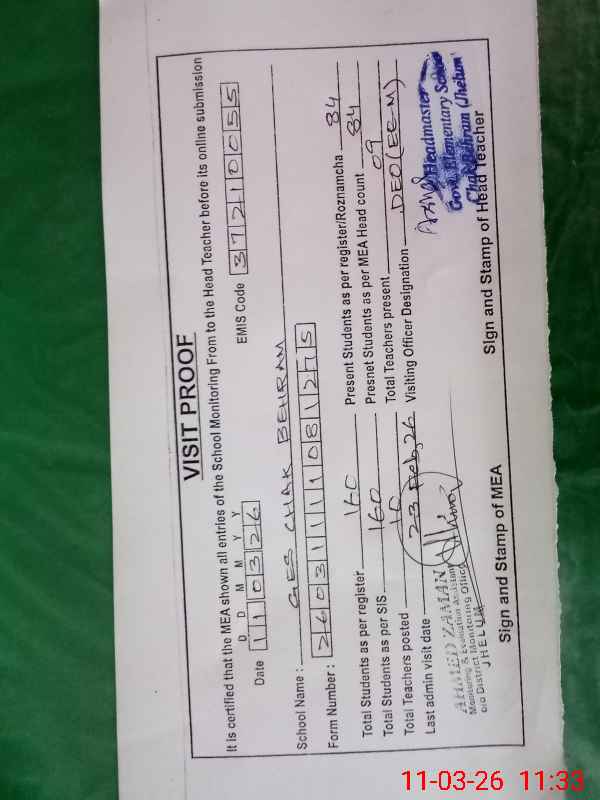 VISIT PROOF
It is certified that the MEA shown all entries of the School Monitoring From to the Head Teacher before its online submission
D D M M Y Y
Date 110326 EMIS Code 37210055
School Name : GES CHAK BEHRAM
Form Number : 26031111081275
Total Students as per register 160 Present Students as per register/Roznamcha 84
Total Students as per SIS 160 Presnet Students as per MEA Head count 84
Total Teachers posted 10 Total Teachers present 09
Last admin visit date 23 Feb, 26 Visiting Officer Designation DEO (EE-M)
AHMED ZAMAN
Monitoring & Evaluation Assistant
O/o District Monitoring Officer
JHELUM
Headmaster
Govt. Elementary School
Chak Behram (Jhelum)
Sign and Stamp of MEA Sign and Stamp of Head Teacher
11-03-26 11:33